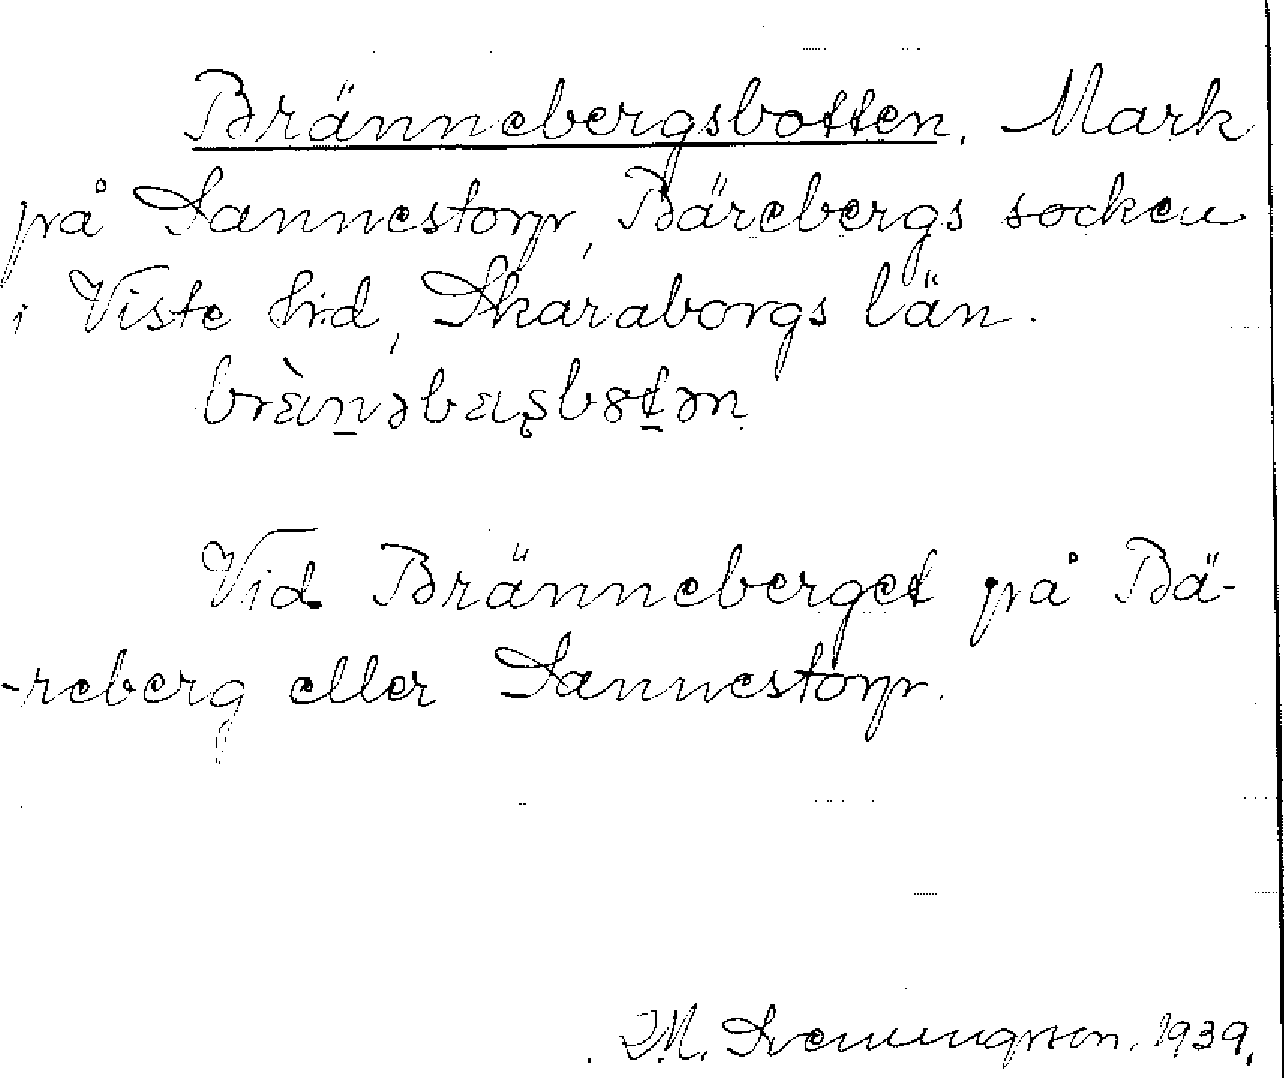 Brännebergsbotten. Mark
på Sannestorp, Bärebergs socken
i Viste hd, Skaraborgs län.

Vid Bränneberget på Bä-
-reberg eller Sannestorp.
M. Svenungsson. 1939.